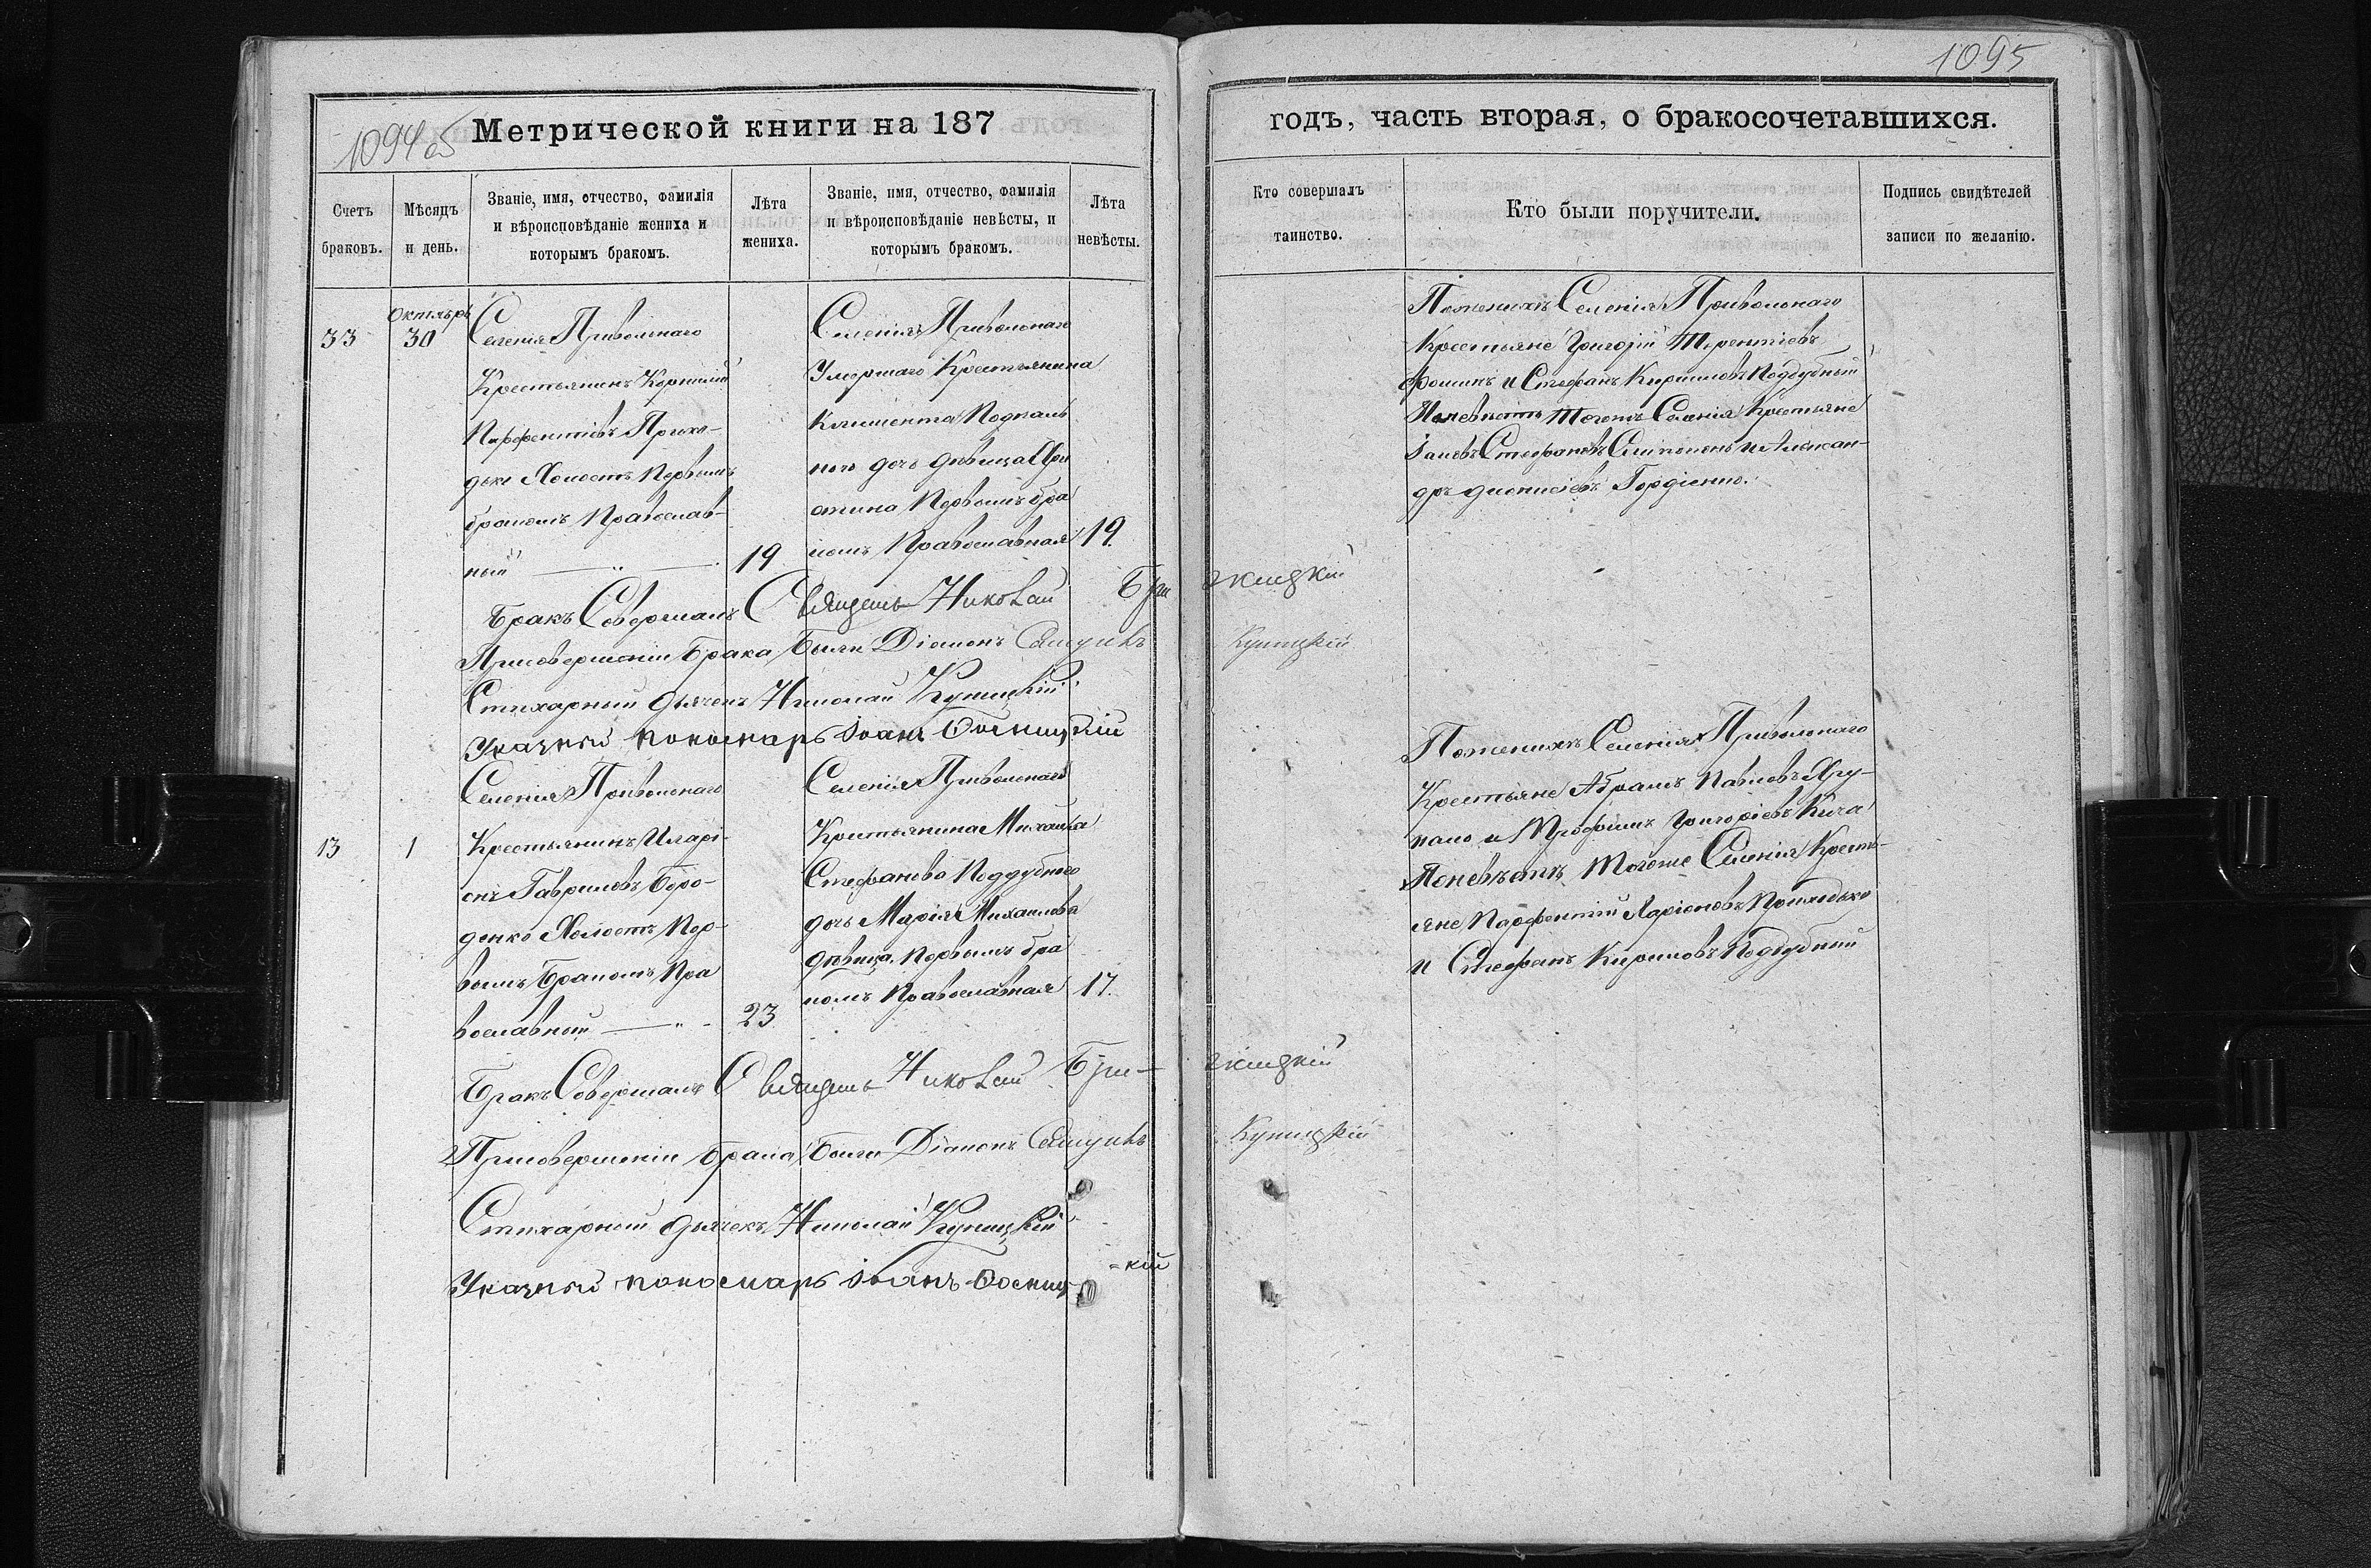 1094 об
Метрической книги на 187
Счетъ браковъ.
Мѣсяцъ и день.
Званіе, имя, отчество, фамилія и вѣроисповѣданіе жениха и которымъ бракомъ.
Лѣта жениха.
Званіе, имя, отчество, фамилія и вѣроисповѣданіе невѣсты, и которымъ бракомъ.
Лѣта невѣсты.
33
Октябрь
30
Селенія Привольнаго
Крестьянинъ
Парфентіевъ Прихо-
дько Холостъ Первымъ
бракомъ Православ-
ный
19
Селенія Привольнаго
Умершаго Крестьянина
Климента
дочь дѣвица Хри
стина Первымъ бра
комъ Православная
19.
Бракъ Совершалъ Священъ Николай Бри
жицкій
Присовершеніи Брака были Діаконъ
Куницкій
Стихарный дьячекъ Николай Куницкій
Указный пономарь Іоанъ
13
1
Селенія Привольнаго
Крестьянинъ Иларі-
онъ Гавриловъ Боро-
денко Холостъ Пер-
вымъ Бракомъ Пра
вославный
23
Селенія Привольнаго
Крестьянина Михаила
Стефанова Поддубного
дочь Марія Михаилова
дѣвица Первымъ бра
комъ Православная
17.
Бракъ Совершалъ Священъ Николай Бри-
жицкій
Присовершеніи брака были Діаконъ
Куницкій
Стихарный дьячекъ Николай Куницкій
Указный пономарь Іоанъ
=кій
1095
годъ, часть вторая, о бракосочетавшихся.
Кто совершалъ таинство.
Кто были поручители.
Подпись свидѣтелей записи по желанію.
Поженихѣ Селенія Привольнаго
Крестьяне Григорій Терентіевъ
Фоминъ и Стефанъ Кириловъ Поддубный
Поневѣстѣ тогожъ Селенія Крестьяне
Іаковъ Стефановъ и Алексан-
дръ Діонисіевъ Гордіенко.
Поженихѣ Селенія Привольнаго
Крестьяне Абрамъ Павловъ
и Трофимъ Григоріевъ
Поневѣстѣ Тогоже Селенія Кресть-
яне Парфентій Ларіоновъ Приходько
и Стефанъ Кириловъ Поддубный